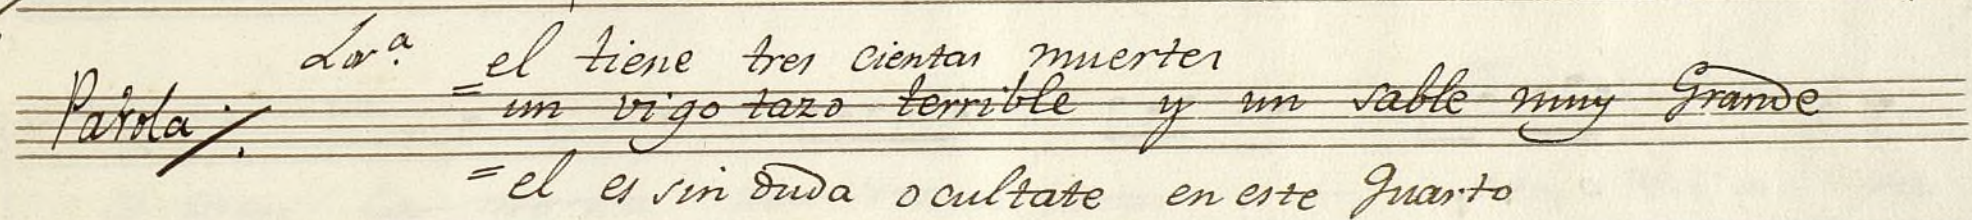 Lor.ª el tiene tres cientas muertes
Parola ·/. = un vigotazo terrible y un sable muy Grande
= el es sin duda ocultate en este Quarto